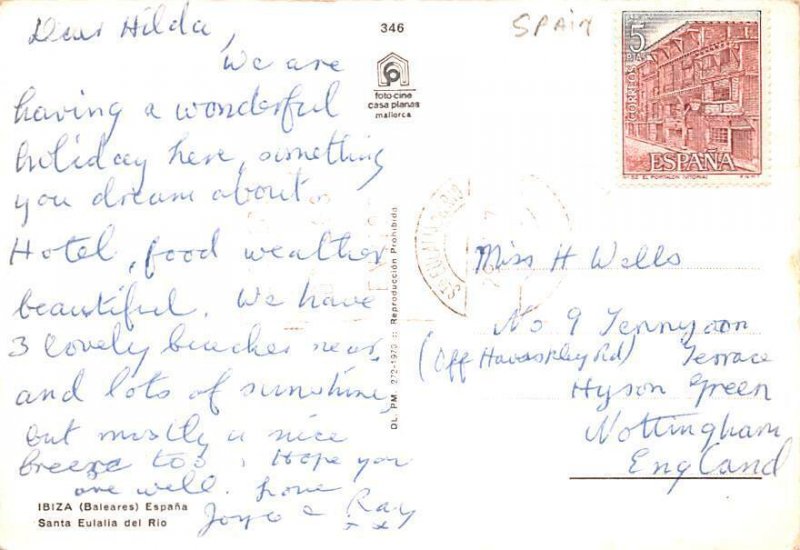 Dear Hilda,
We are
having a wonderful
holiday here, something
you dream about
Hotel, food weather
beautiful. We have
3 lovely beaches near,
and lots of sunshine,
but mostly a nice
breeze too, Hope you
are well. Love
Joyce & Ray
x x
IBIZA (Baleares) España
Santa Eulalia del Rio
346
foto-cine
casa planas
mallorca
DL. PM. 272-1970 :: Reproducción Prohibida
SPAIN
5
PTA
CORREOS
ESPAÑA
EL PORTALON (VITORIA)
F.N.M.T.
Miss H Wells
No 9 Tennyson
(Off Rd) Terrace
Hyson Green
Nottingham
England